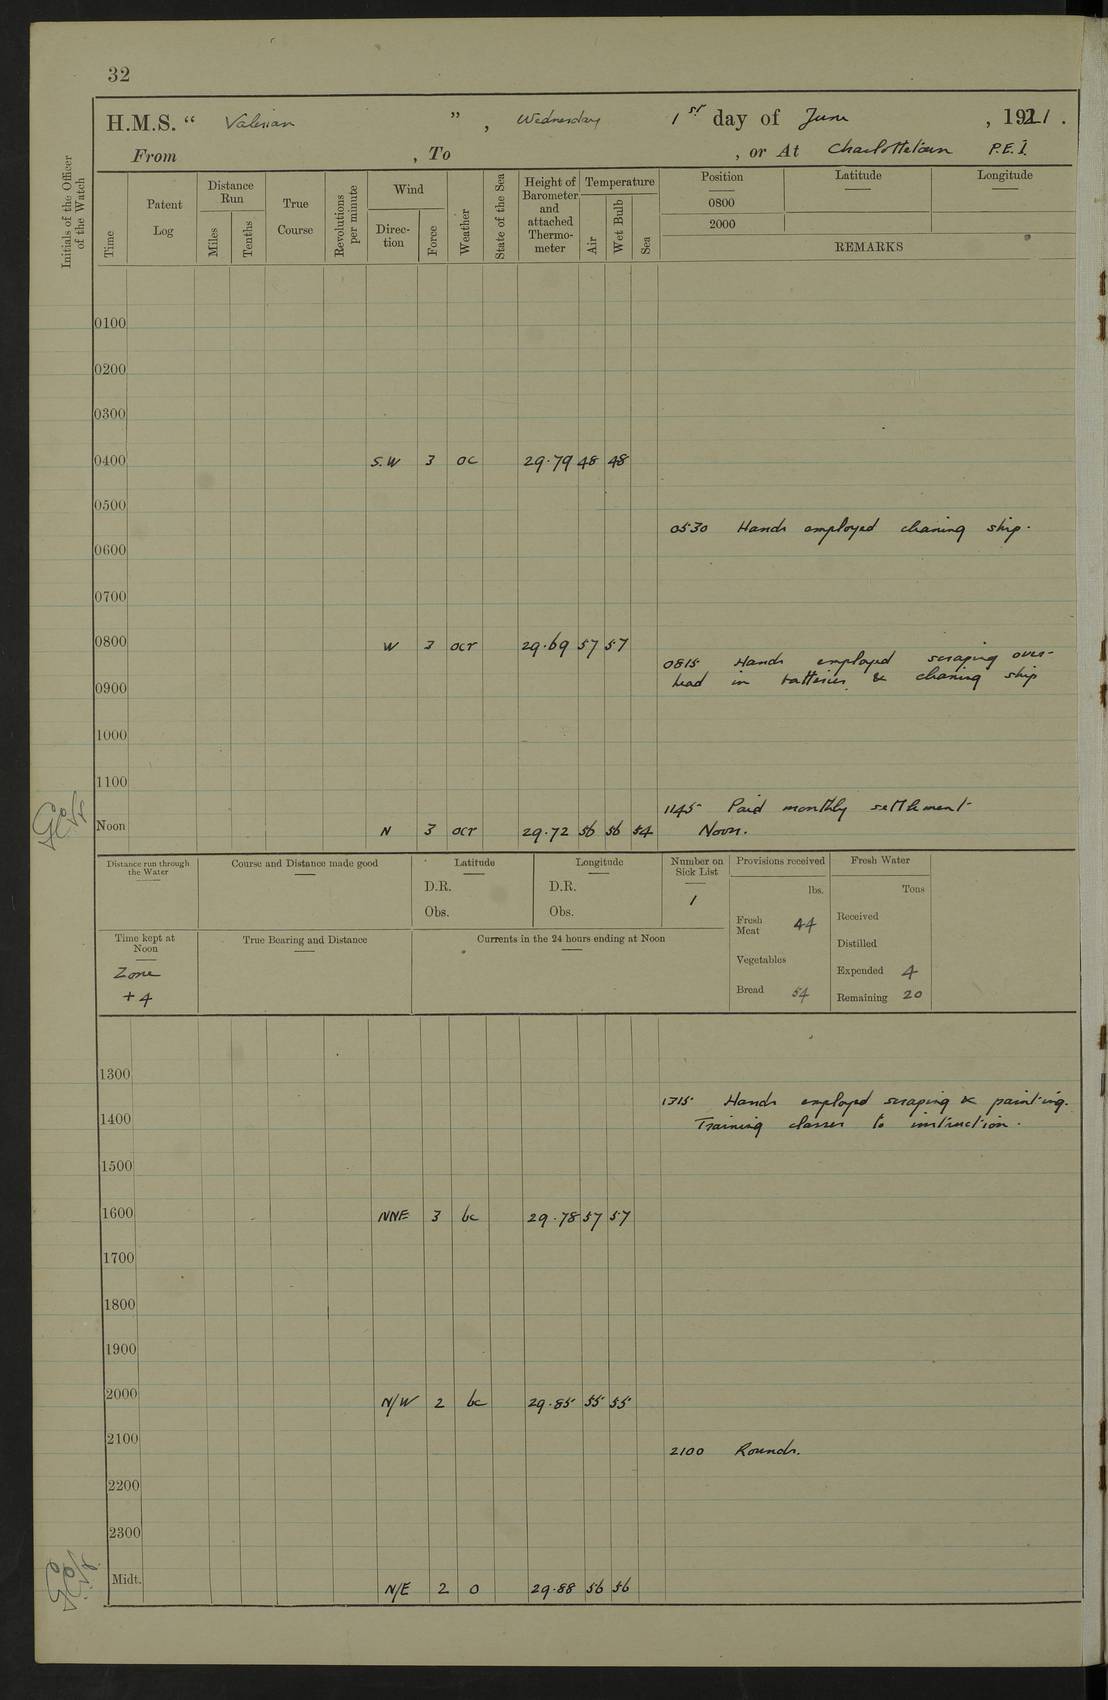 32
H.M.S. “ Valerian ” , Wednesday 1st day of June , 1921 .
From , To , or At Charlottetown P.E.I.
Initials of the Officer of the Watch
Time
Patent Log
Distance Run
Miles
Tenths
True Course
Revolutions per minute
Wind
Direction
Force
Weather
State of the Sea
Height of Barometer and attached Thermometer
Temperature
Air
Wet Bulb
Sea
Position Latitude Longitude
0800
2000
REMARKS
0100
0200
0300
0400 S.W 3 oc 29.79 48 48
0500
0530 Hands employed cleaning ship.
0600
0700
0800 W 3 ocr 29.69 57 57
0815 Hands employed scraping over-
head in batteries & cleaning ship
0900
1000
1100
1145 Paid monthly settlement
Noon N 3 ocr 29.72 56 56 54 Noon.
Distance run through the Water
Course and Distance made good
Latitude
D.R.
Obs.
Longitude
D.R.
Obs.
Number on Sick List
1
Provisions received
lbs.
Fresh Meat 44
Vegetables
Bread 54
Fresh Water
Tons
Received
Distilled
Expended 4
Remaining 20
Time kept at Noon
Zone
+4
True Bearing and Distance
Currents in the 24 hours ending at Noon
1300
1315 Hands employed scraping & painting.
1400 Training classes to instruction.
1500
1600 NNE 3 bc 29.78 57 57
1700
1800
1900
2000 N/W 2 bc 29.85 55 55
2100
2100 Rounds.
2200
2300
Midt. N/E 2 o 29.88 56 56